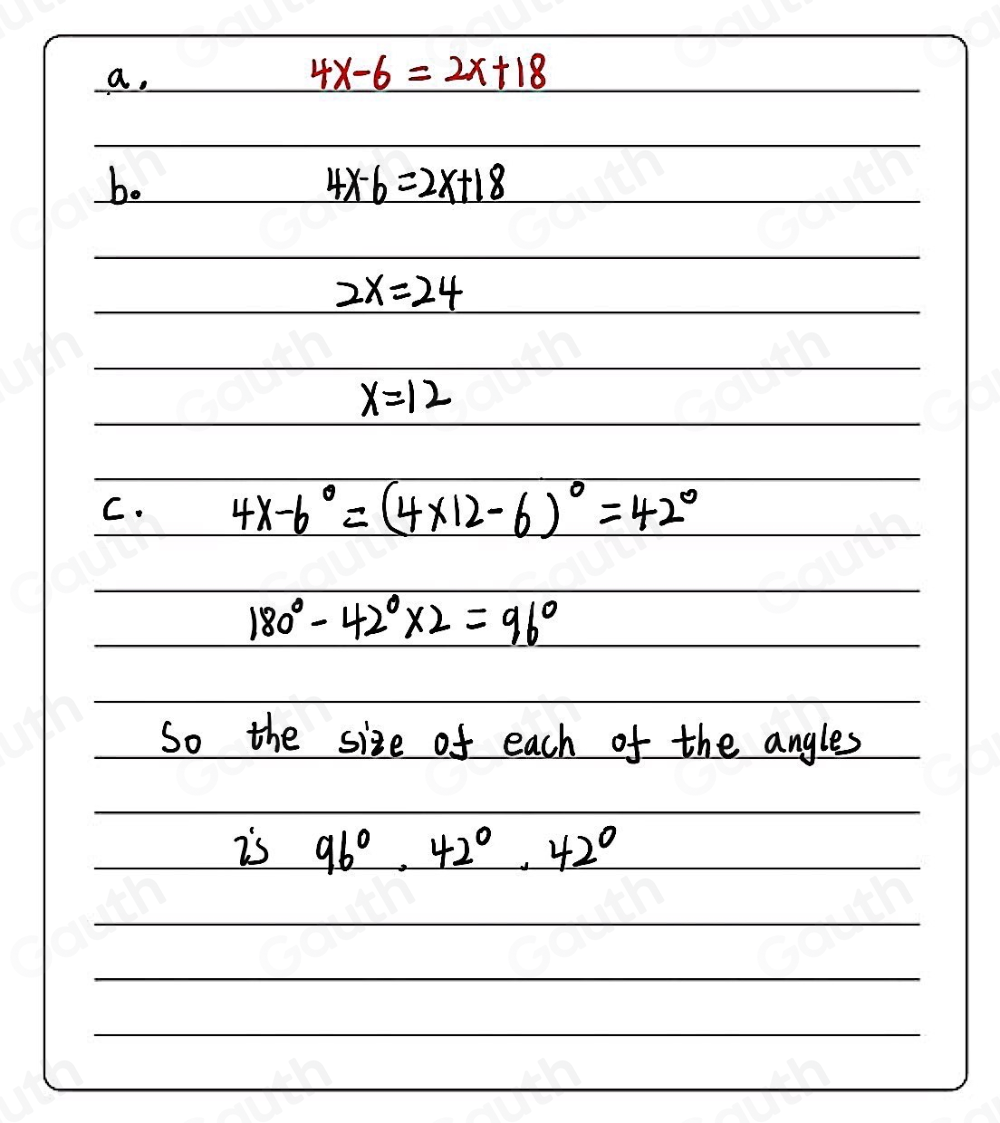 a. 4x-6 = 2x+18
b. 4x-6=2x+18
2x=24
x=12
c. 4x-6° = (4×12-6)° = 42°
180° - 42°×2 = 96°
So the size of each of the angles
is 96°, 42°, 42°
Gauth